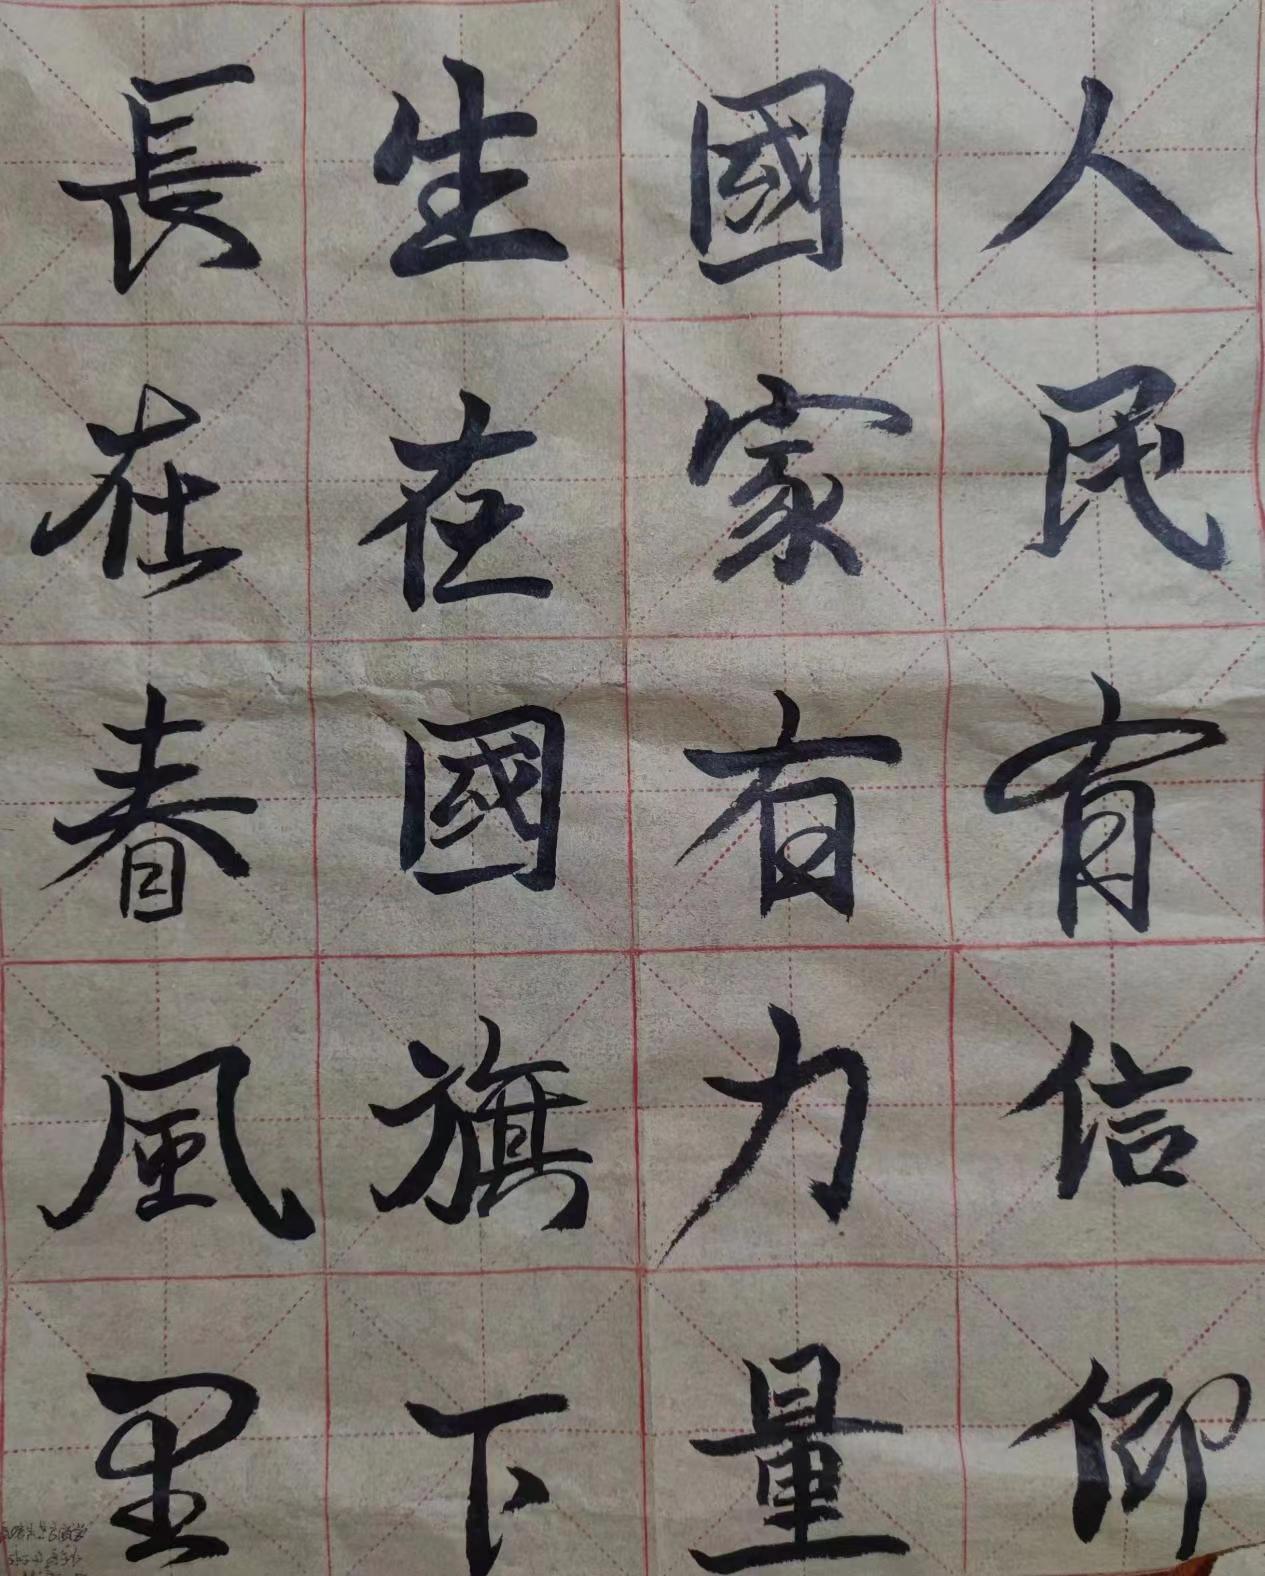 人民有信仰
國家有力量
生在國旗下
長在春風里